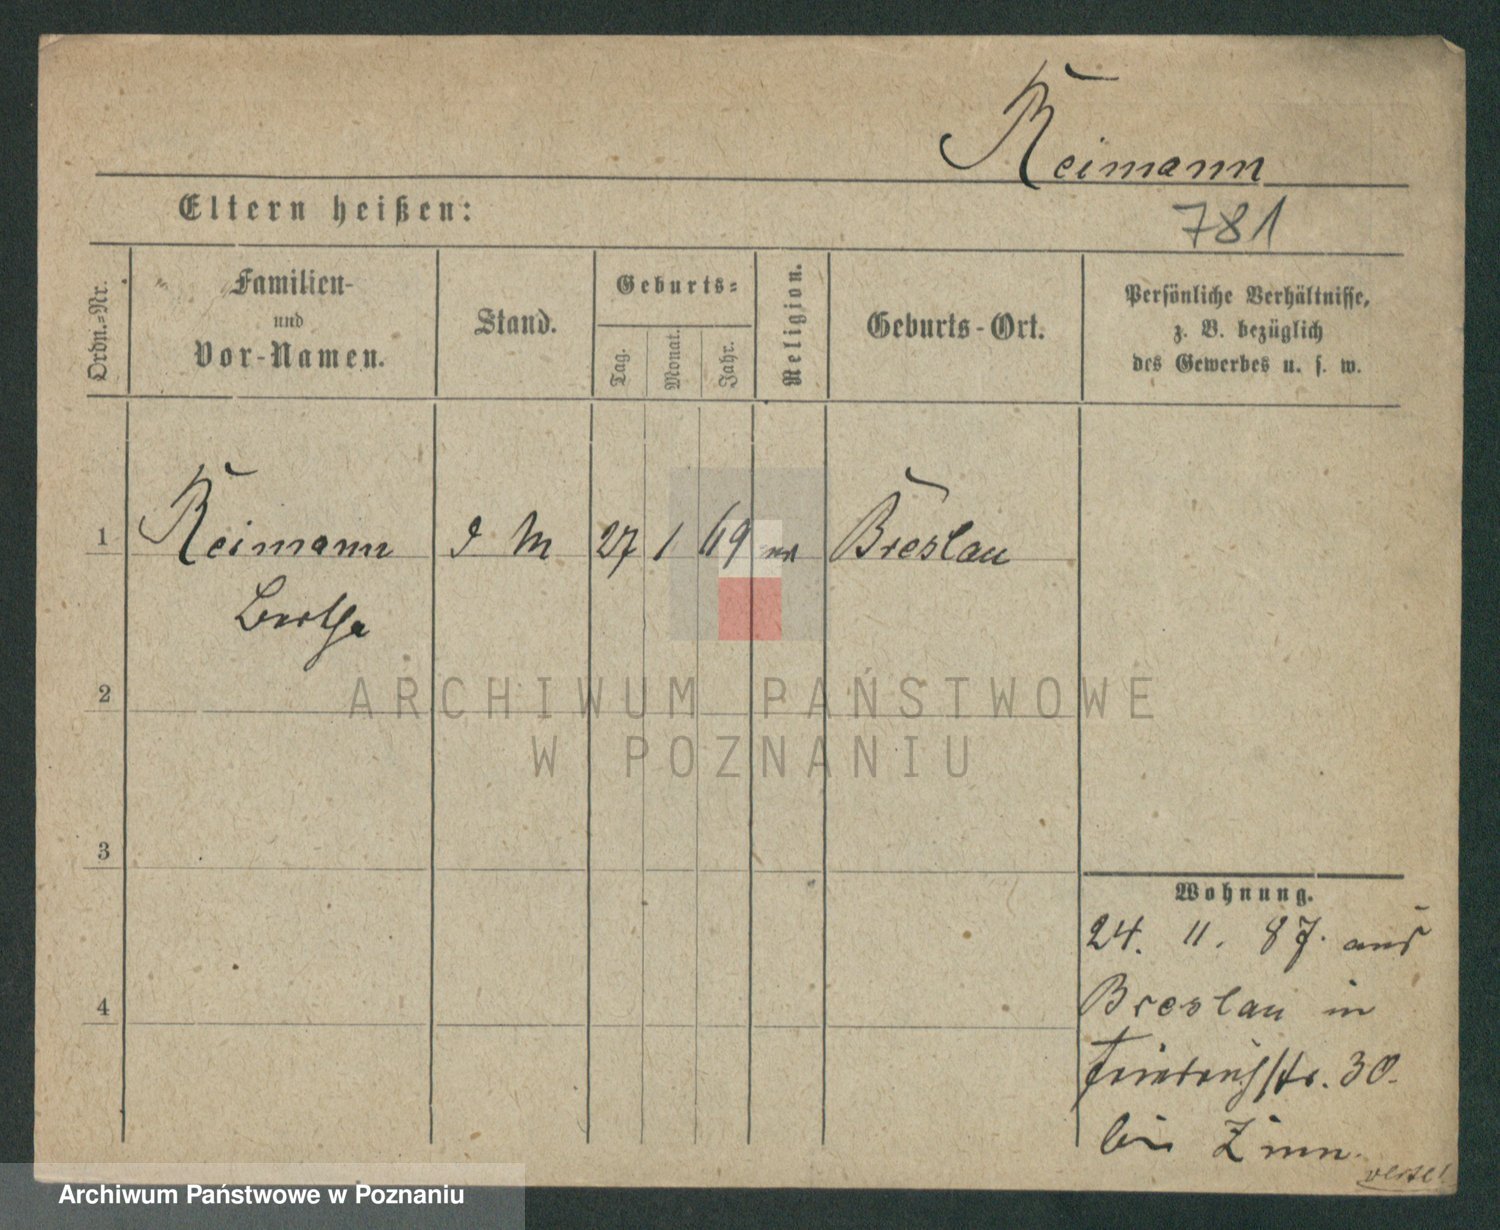 Reimann
Eltern heißen:
781
Ordn.-Nr.
Familien-
und
Vor-Namen.
Stand.
Geburts-
Tag.
Monat.
Jahr.
Religion.
Geburts-Ort.
Persönliche Verhältnisse,
z. B. bezüglich
des Gewerbes u. s. w.
1 Reimann D M 27 1 69 Breslau
Bertha
2
ARCHIWUM PAŃSTWOWE
W POZNANIU
3
Wohnung.
24. 11. 87. aus
Breslau in
4
Friedrichstr. 30.
bei Zinn.
verte!
Archiwum Państwowe w Poznaniu